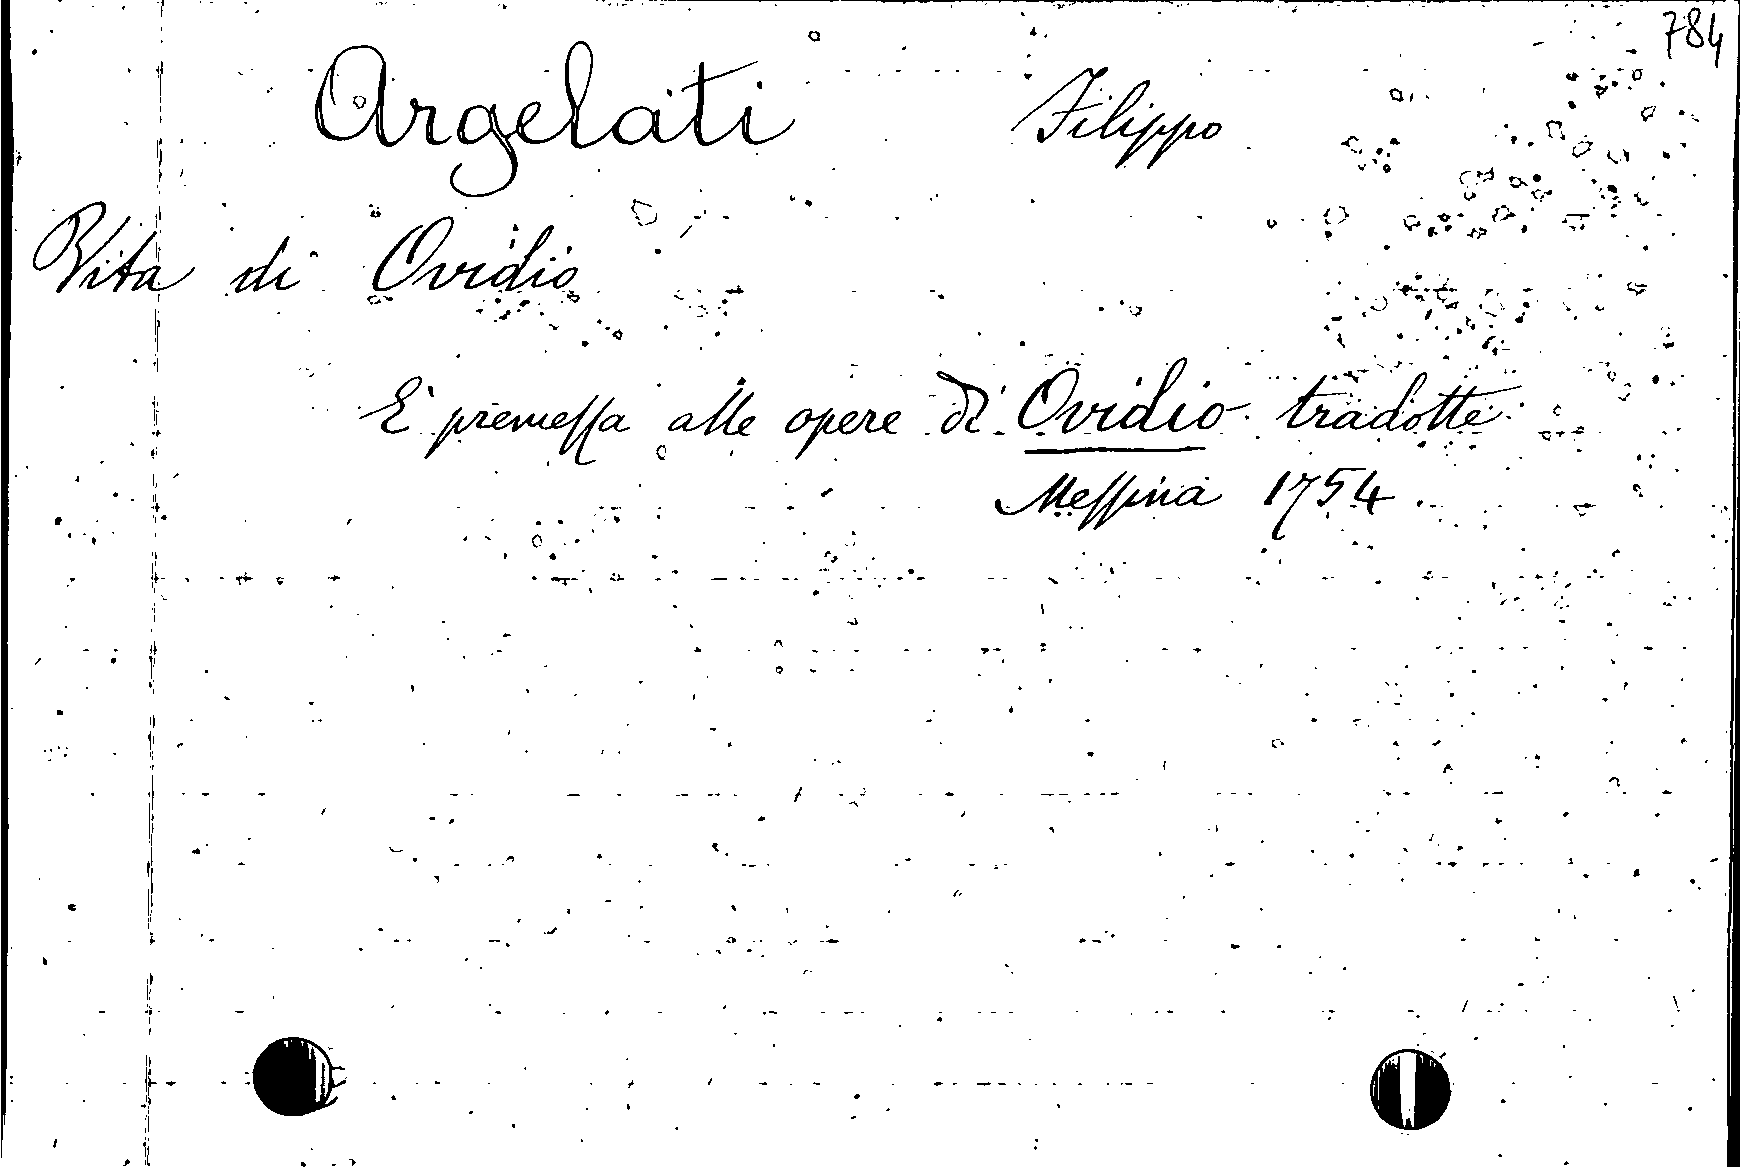 784
Argelati Filippo
Vita di Ovidio
E' premessa alle opere di Ovidio tradotte
Messina 1754.